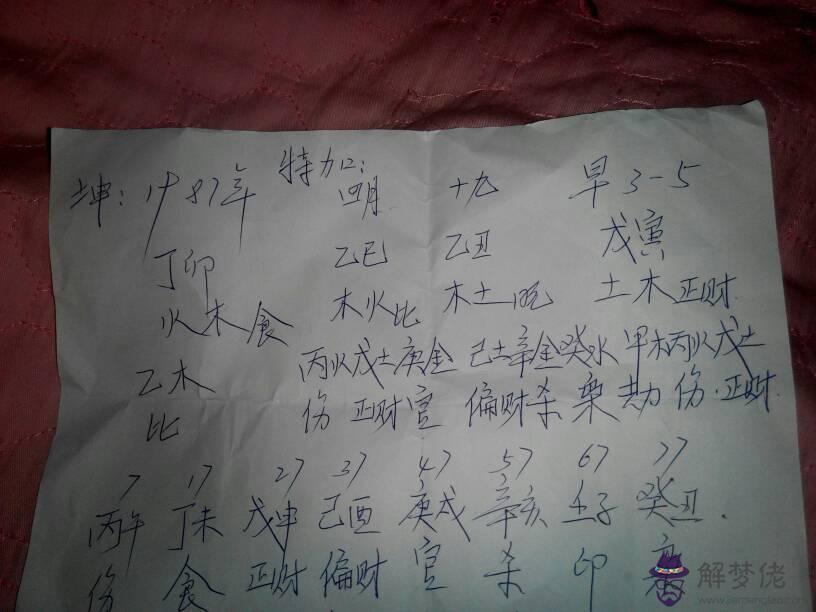 特加口:
坤: 1987年 四月 十九 早3-5
丁卯 乙巳 乙丑 戊寅
火木食 木火比 木土 土木正财
乙木 丙火戊土庚金 己土辛金癸水 甲木丙火戊土
比 伤 正财官 偏财杀 枭 劫 伤.正财
7 17 27 37 47 57 67 77
丙午 丁未 戊申 己酉 庚戌 辛亥 壬子 癸丑.
伤 食 正财 偏财 官 杀 印 枭
解梦佬